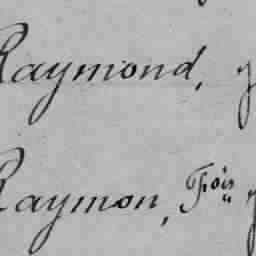 Raymond,
Raymon, Fois